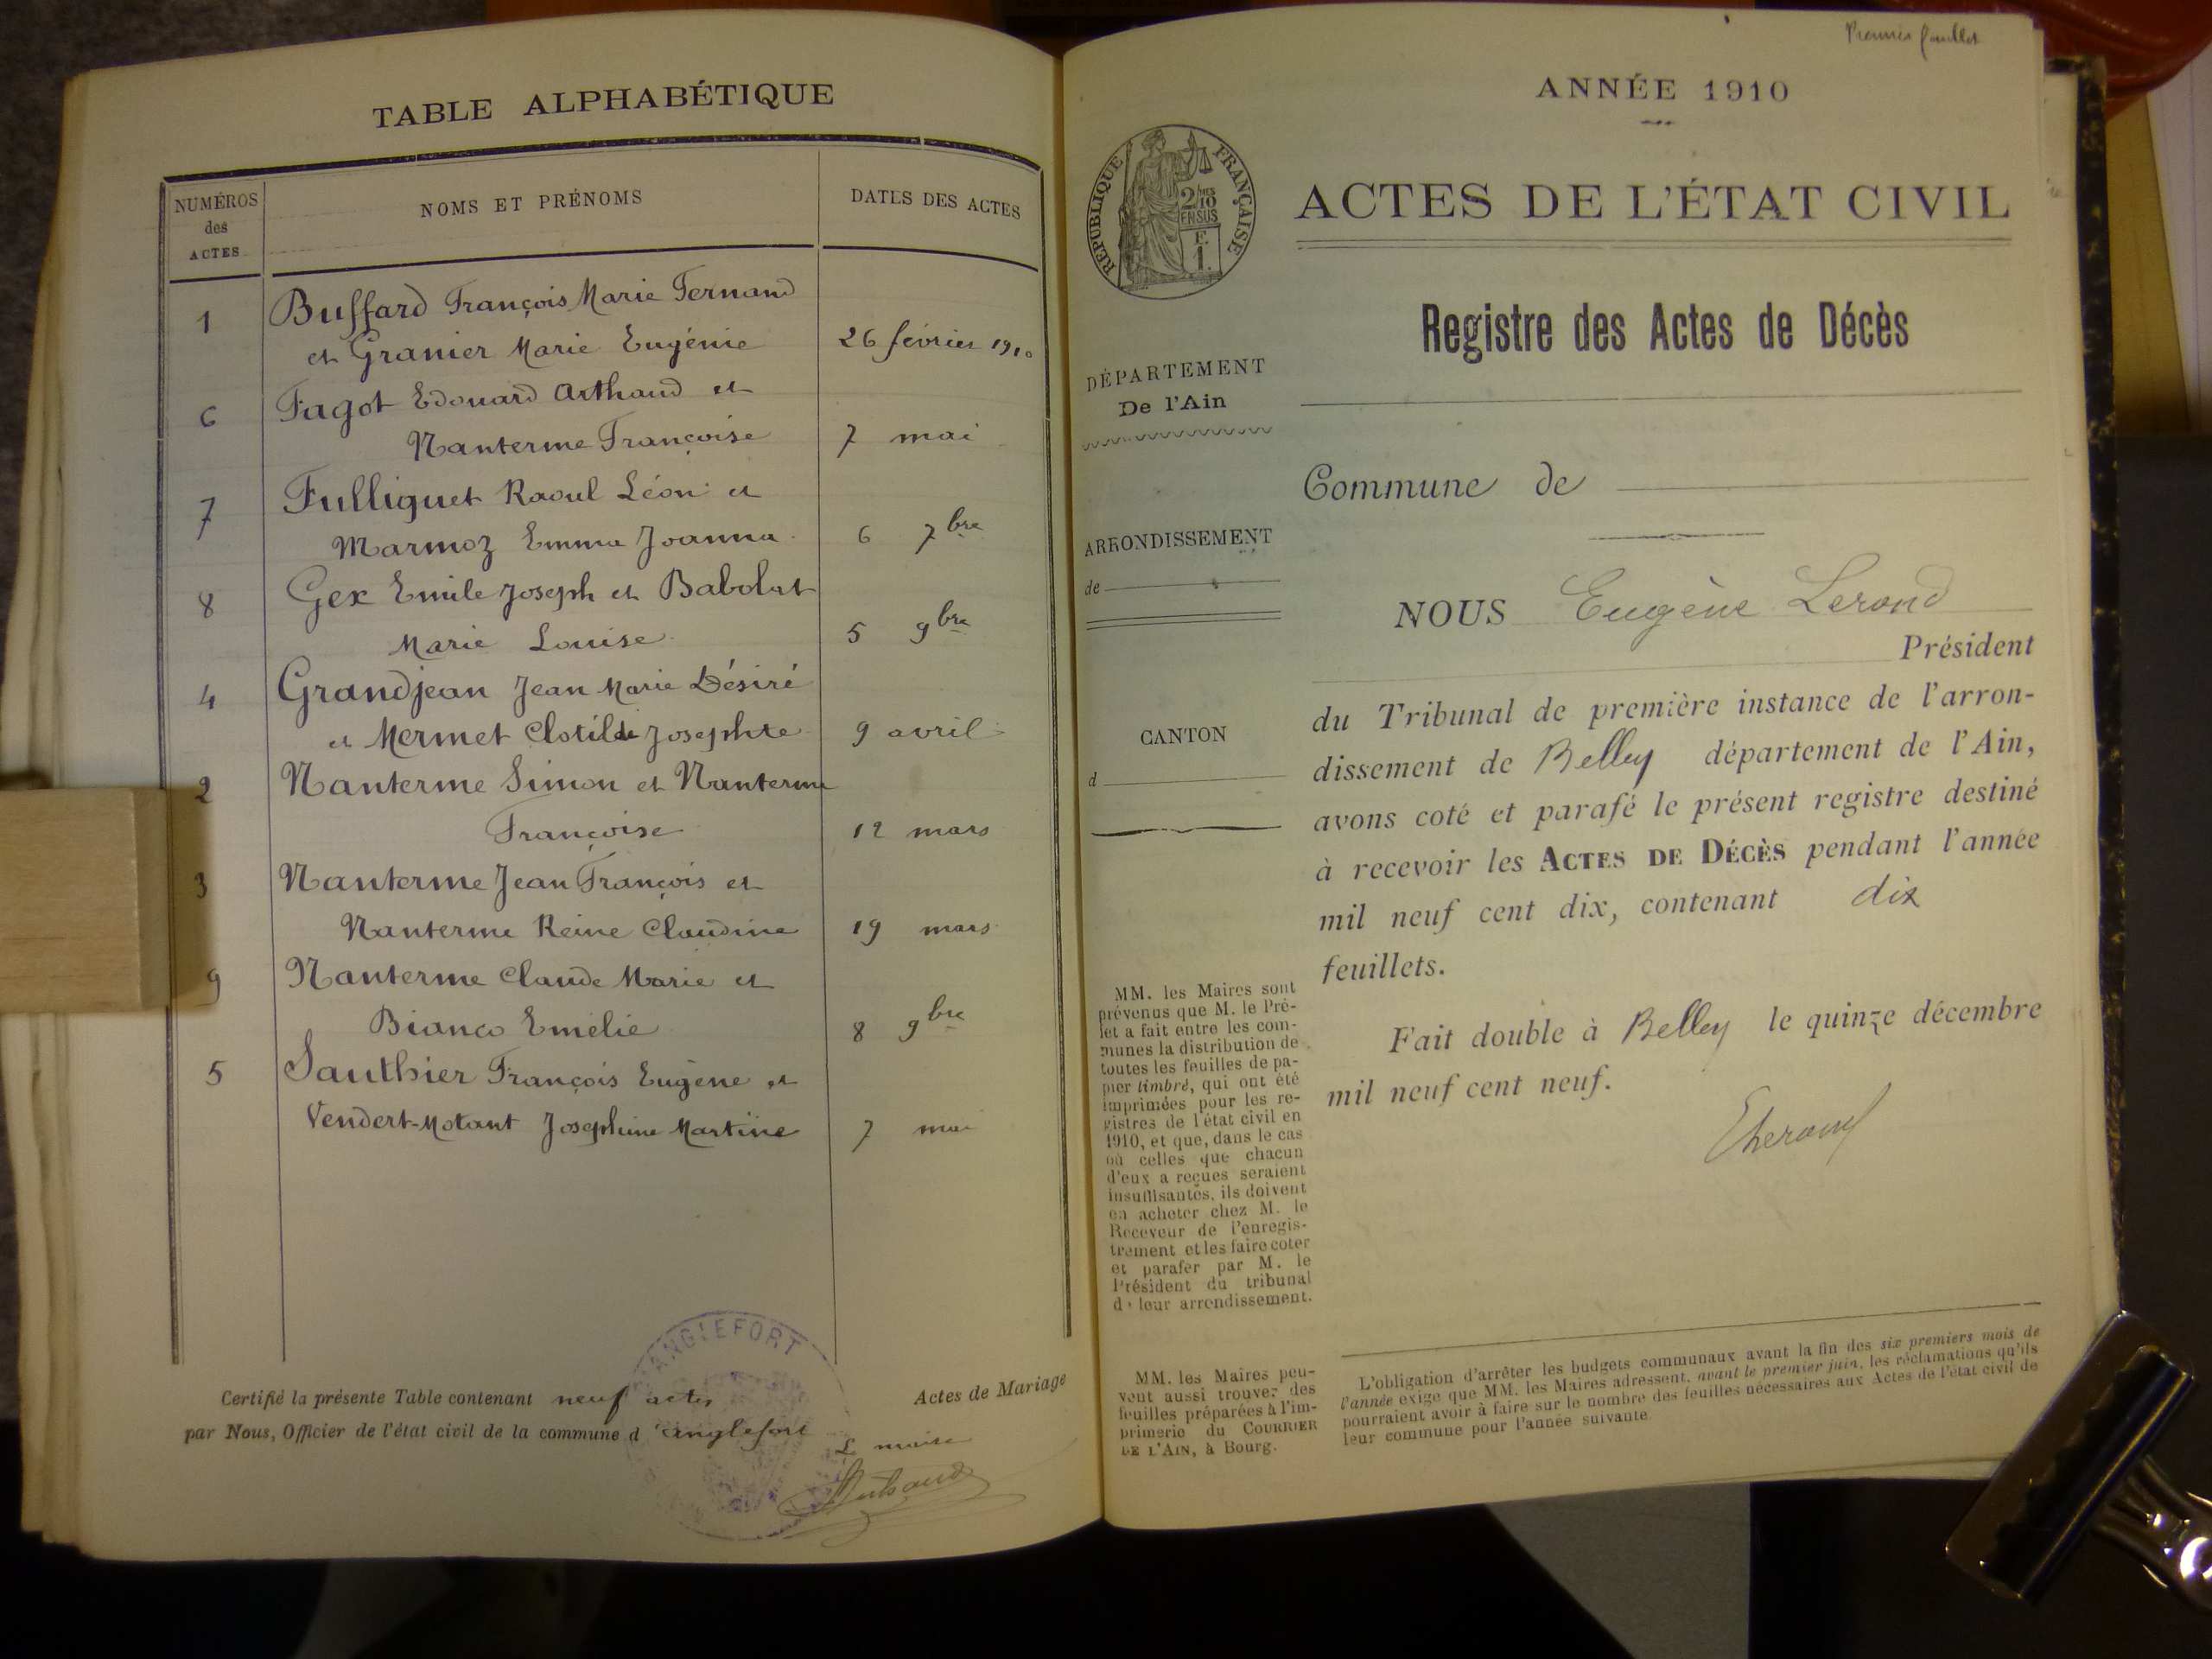 TABLE ALPHABÉTIQUE
NUMÉROS des ACTES
NOMS ET PRÉNOMS
DATES DES ACTES
1 Buffard François Marie Fernand
et Granier Marie Eugénie 26 février 1910
6 Fagot Edouard Arthaud et
Nanterme Françoise 7 mai
7 Fulliquet Raoul Léon et
Marmoz Emma Joanna 6 7bre
8 Gex Emile Joseph et Babolat
Marie Louise 5 9bre
4 Grandjean Jean Marie Désiré
et Mermet Clotilde Josephte 9 avril
2 Nanterme Simon et Nanterme
Françoise 12 mars
3 Nanterme Jean François et
Nanterme Reine Claudine 19 mars
9 Nanterme Claude Marie et
Bianco Emélie 8 9bre
5 Sauthier François Eugène et
Vendert-Motant Josephine Martine 7 mai
ANGLEFORT
Certifié la présente Table contenant neuf actes Actes de Mariage
par Nous, Officier de l'état civil de la commune d'Anglefort
Le maire
Premier feuillet
ANNÉE 1910
RÉPUBLIQUE FRANÇAISE
2/10
EN SUS
F.
1.
ACTES DE L'ÉTAT CIVIL
Registre des Actes de Décès
DÉPARTEMENT
De l'Ain
ARRONDISSEMENT
de
CANTON
d
Commune de
NOUS Eugène Lerond
Président
du Tribunal de première instance de l'arron-
dissement de Belley département de l'Ain,
avons coté et parafé le présent registre destiné
à recevoir les ACTES DE DÉCÈS pendant l'année
mil neuf cent dix, contenant dix
feuillets.
Fait double à Belley le quinze décembre
mil neuf cent neuf.
MM. les Maires sont
prévenus que M. le Pré-
fet a fait entre les com-
munes la distribution de
toutes les feuilles de pa-
pier timbré, qui ont été
imprimées pour les re-
gistres de l'état civil en
1910, et que, dans le cas
où celles que chacun
d'eux a reçues seraient
insuffisantes, ils doivent
en acheter chez M. le
Receveur de l'enregis-
trement et les faire coter
et parafer par M. le
Président du tribunal
de leur arrondissement.
MM. les Maires peu-
vent aussi trouver des
feuilles préparées à l'im-
primerie du COURRIER
DE L'AIN, à Bourg.
L'obligation d'arrêter les budgets communaux avant la fin des six premiers mois de
l'année exige que MM. les Maires adressent, avant le premier juin, les réclamations qu'ils
pourraient avoir à faire sur le nombre des feuilles nécessaires aux Actes de l'état civil de
leur commune pour l'année suivante.